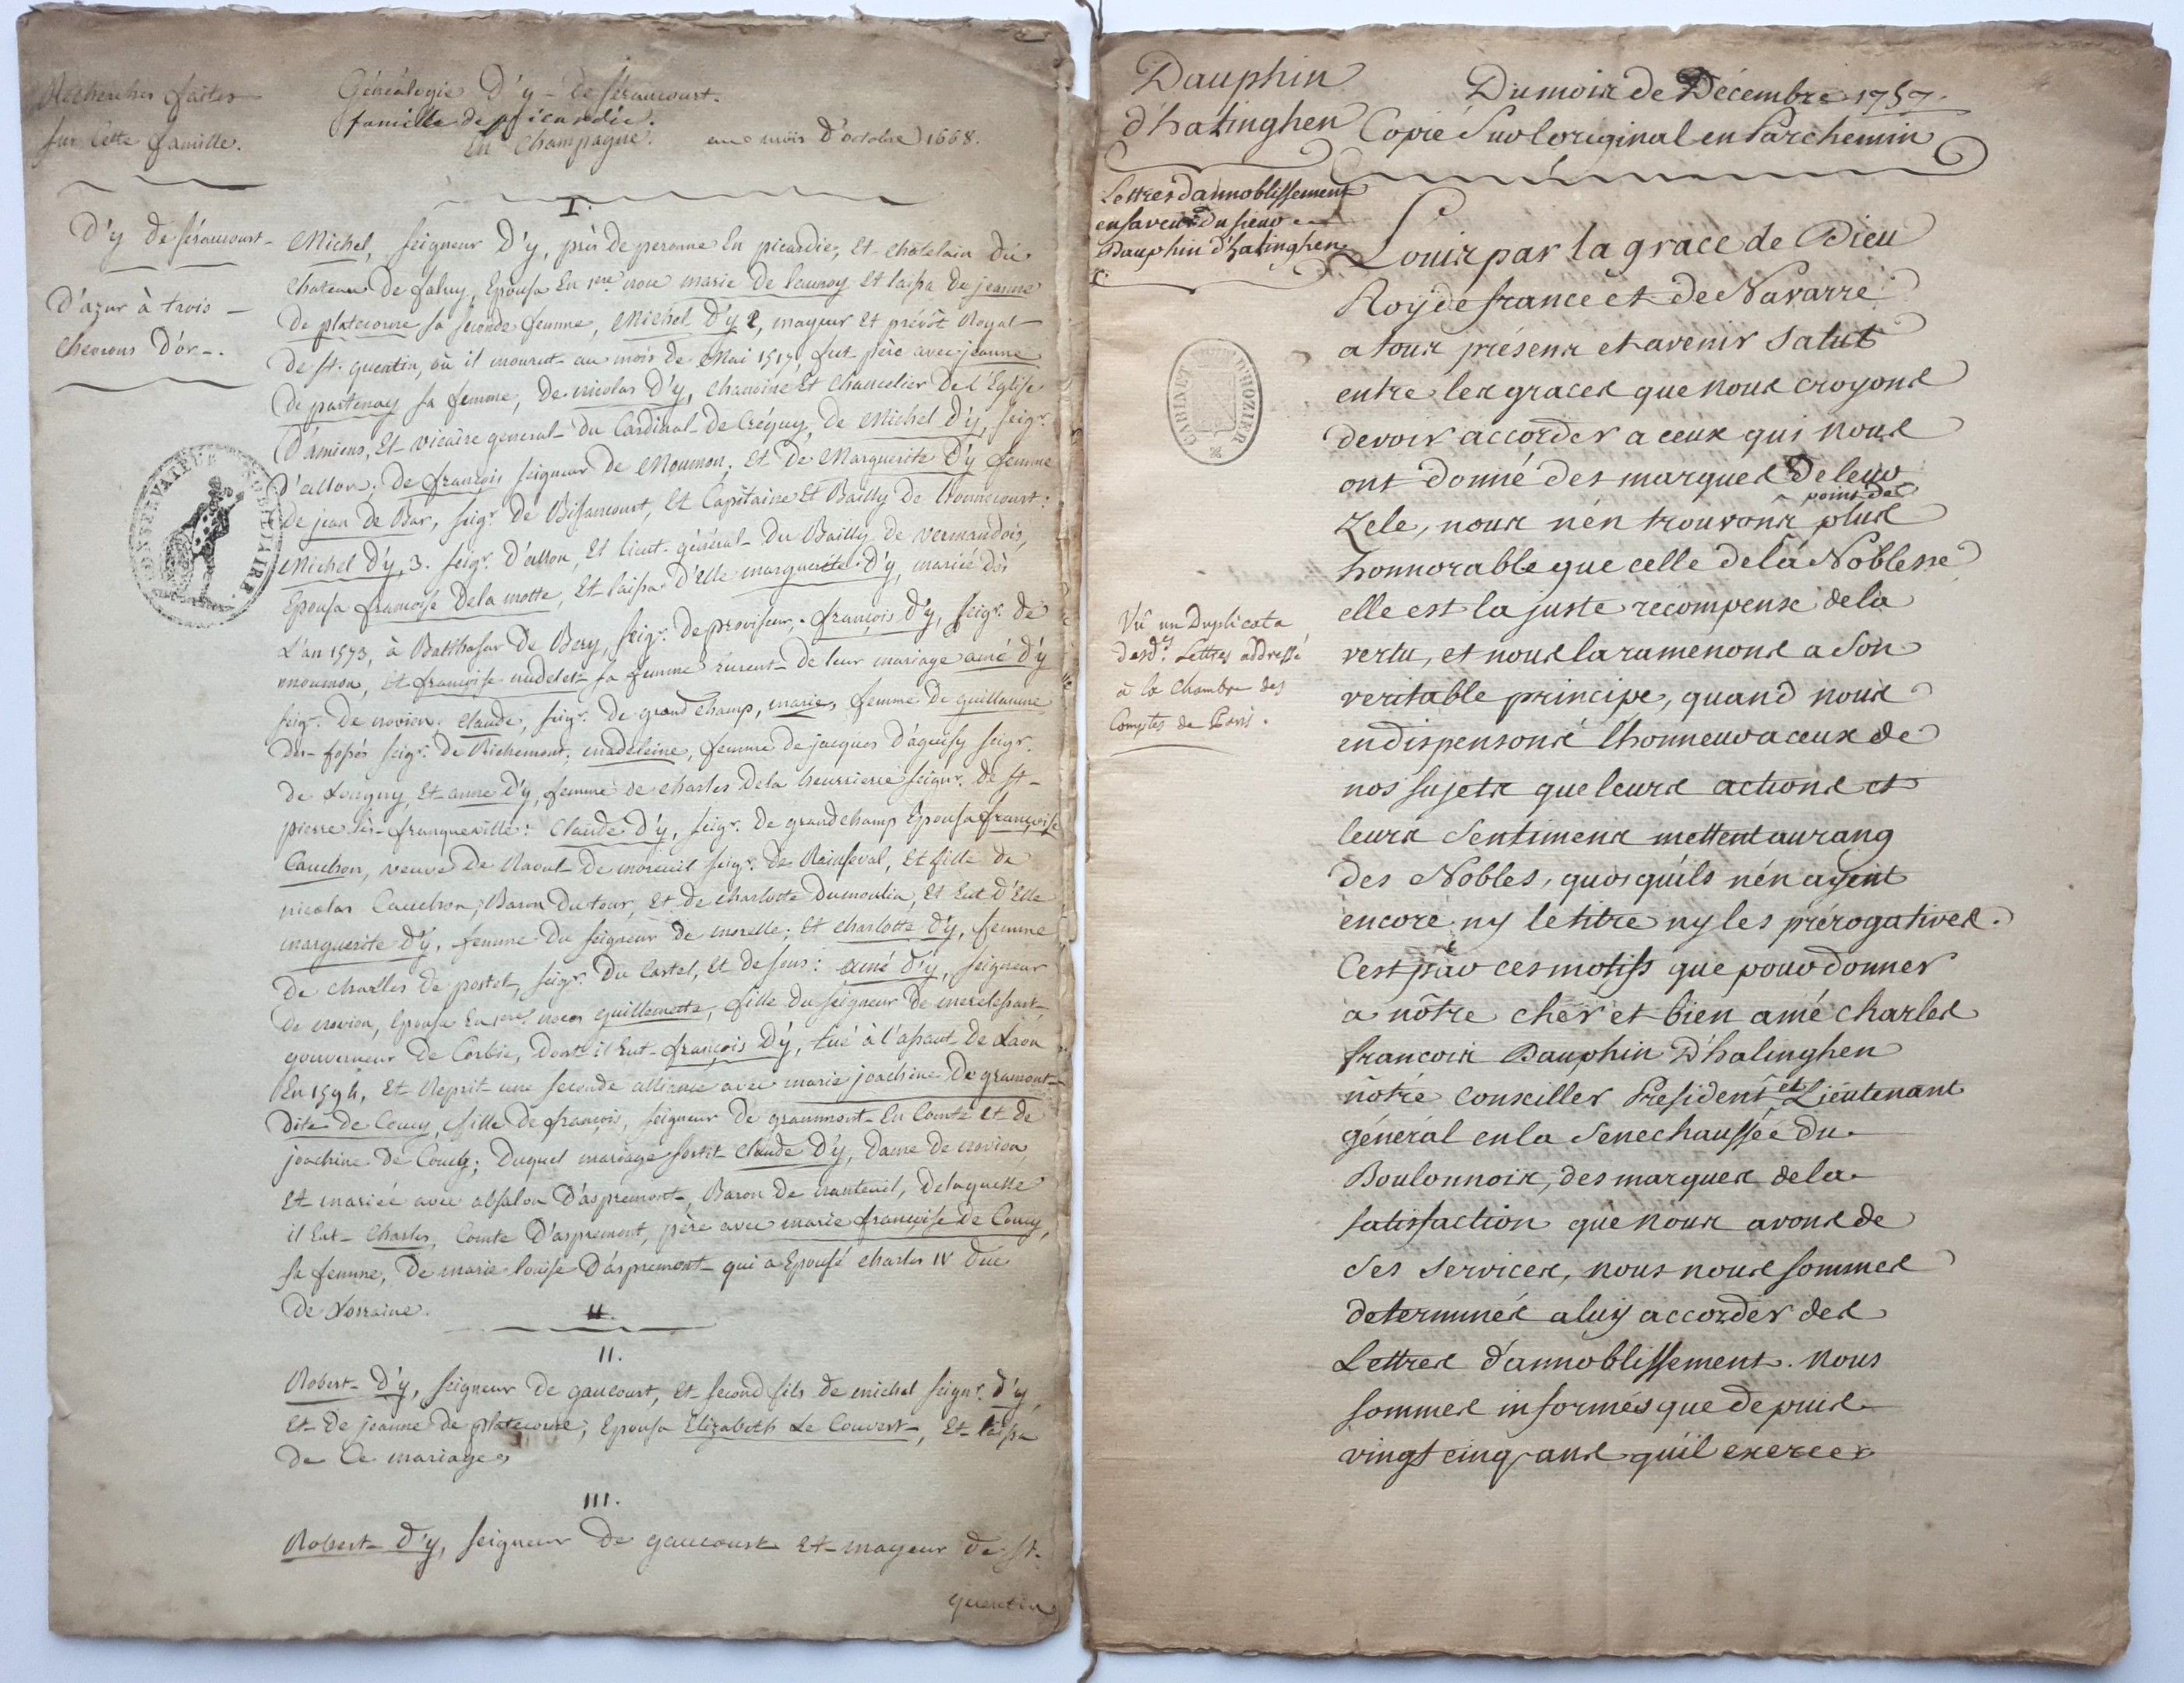 Recherches faites
sur cette famille.
Généalogie D'y - de seraucourt.
famille de picardie.
En Champagne. au mois D'octobre 1668.
D'y de seraucourt -
D'azur à trois -
chevrons D'or -.
I.
Michel, seigneur D'y, près de peronne En picardie, Et chatelain du
chateau De faluy, Epousa En 1ere noce marie de launoy Et laissa De jeanne
De platecorne sa seconde femme, Michel D'y 2, mayeur Et prévôt Royal
de st. quentin, où il mourut au mois de Mai 1517, fut père avec jeanne
De partenay sa femme, De nicolas D'y, chanoine Et chancelier De l'Eglise
D'amiens, Et vicaire general du Cardinal De Créquy, De Michel D'y, seigr.
D'allon; De françois seigneur de Moumon, Et De Marguerite D'y femme
De jean de Bar, seigr. De Bissancourt, Et Capitaine Et Bailly De honnecourt:
Michel D'y, 3. seigr. D'allon, Et lieut. général Du Bailly de vermandois,
Epousa françoise Dela motte, Et laissa D'Elle marguerite D'y, mariée dès
L'an 1573, à Balthasar De Bery, seigr. De proviseux, françois D'y, seigr. de
moumon, Et françoise nudelet sa femme Eurent de leur mariage amé D'y
seigr. De novion. claude, seigr. De grand champ, marie, femme De guillaume
Des fossés seigr. De Richemont, madeleine, femme de jacques D'aguisy seigr.
de Lougny, Et anne D'y, femme de charles Dela heurrierre seignr. De st -
pierre lès - franqueville: Claude D'y, seigr. De grandchamp Epousa françoise
Cauchon, veuve De Raoul De moreuil seigr. de Rainseval, Et fille de
nicolas Cauchon; Baron Du tour, Et De charlotte Dumoulin, Et Eut D'Elle
marguerite D'y, femme Du seigneur De morelle; Et charlotte D'y, femme
De charles De postel, seigr. Du Castel, Et De sous: amé D'y, seigneur
de novion, Epousa En 1ere noces guillemette, fille du seigneur de
gouverneur De Corbie, Dont il Eut françois D'y, tué à l'assaut de Laon
En 1594, Et Reprit une seconde alliance avec marie joachine De gramont
Dite De Coucy, fille De françois, seigneur de grammont En Comté Et de
joachine De Coucy; Duquel mariage sortit claude D'y, Dame De novion,
Et mariée avec absalon D'aspremont, Baron De nanteuil, Delaquelle
il Eut - Charles, Comte D'aspremont, père avec marie françoise De Coucy,
sa femme, De marie louise D'aspremont qui a Epousé charles IV Duc
De Lorraine.
II.
Robert D'y, seigneur De gaucourt, Et second fils de michel seignr. D'y,
Et De jeanne De platecorne; Epousa Elizabeth Le Couvert, Et laissa
De Ce mariage
III.
Robert D'y, seigneur De gaucourt Et mayeur De st.
quentin
Dauphin
d'halinghen
Du mois de Décembre 1757.
Copie Sur l'original en Parchemin
Lettres d'annoblissement
en faveur du sieur
Dauphin d'halinghen
Louis par la grace de Dieu
Roy de france et de Navarre
a tous présens et avenir Salut
entre les graces que nous croyons
devoir accorder a ceux qui nous
ont donné des marques De leur
point de
Zele, nous n'en trouvons plus
honnorable que celle de la Noblesse
elle est la juste recompense de la
vertu, et nous la ramenons a Son
veritable principe, quand nous
en dispensons l'honneur a ceux de
nos sujets que leurs actions et
leurs Sentimens mettent au rang
des Nobles, quoiqu'ils n'en ayent
encore ny le titre ny les prérogatives.
C'est par ces motifs que pour donner
a nôtre cher et bien amé Charles
francois Dauphin D'halinghen
nôtre conseiller President et Lieutenant
général en la Senechaussée du
Boulonnois, des marques de la
satisfaction que nous avons de
Ses Services, nous nous sommes
determinés a luy accorder des
Lettres d'annoblissement. nous
sommes informés que depuis
vingt cinq ans qu'il exerce
Vû un Duplicata
desd. Lettres addressé
à la Chambre des
Comptes de Paris.
CABINET D'HOZIER
CONSERVATEUR